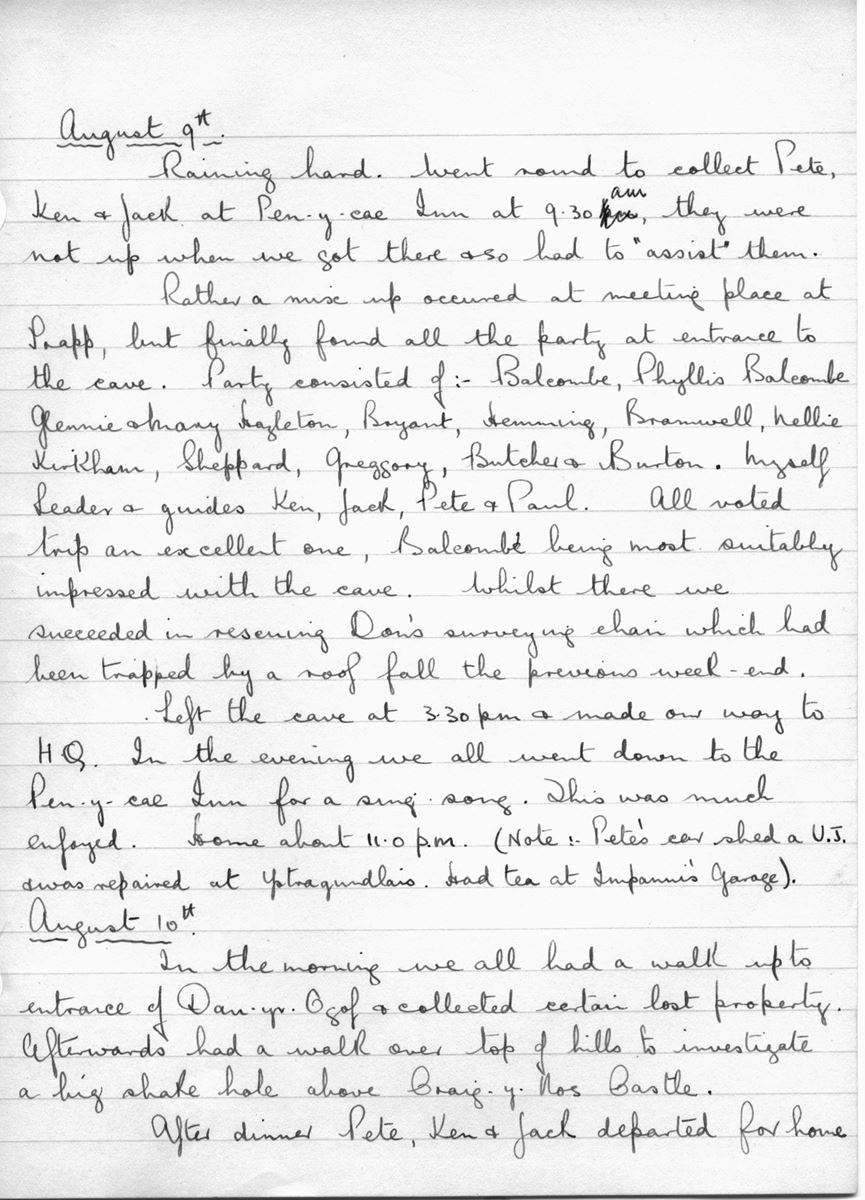 August 9th.
Raining hard. Went round to collect Pete,
Ken & Jack at Pen-y-cae Inn at 9.30 am, they were
not up when we got there & so had to "assist" them.
Rather a mix up occured at meeting place at
Prapp, but finally found all the party at entrance to
the cave. Party consisted of :- Balcombe, Phyllis Balcombe
Glennie & Mary Hazleton, Bryant, Hemming, Bramwell, Nellie
Kirkham, Sheppard, Greggory, Butcher & Burton. Myself
Leader & guides Ken, Jack, Pete & Paul. All voted
trip an excellent one, Balcombe being most suitably
impressed with the cave. Whilst there we
succeeded in rescuing Don's surveying chain which had
been trapped by a roof fall the previous week-end.
Left the cave at 3.30 pm & made our way to
HQ. In the evening we all went down to the
Pen-y-cae Inn for a sing-song. This was much
enjoyed. Home about 11.0 p.m. (Note :- Pete's car shed a U.J.
& was repaired at Ystragundlais. Had tea at Garage).
August 10th.
In the morning we all had a walk up to
entrance of Dan-yr-Ogof & collected certain lost property.
Afterwards had a walk over top of hills to investigate
a big shake hole above Craig-y-Nos Castle.
After dinner Pete, Ken & Jack departed for home